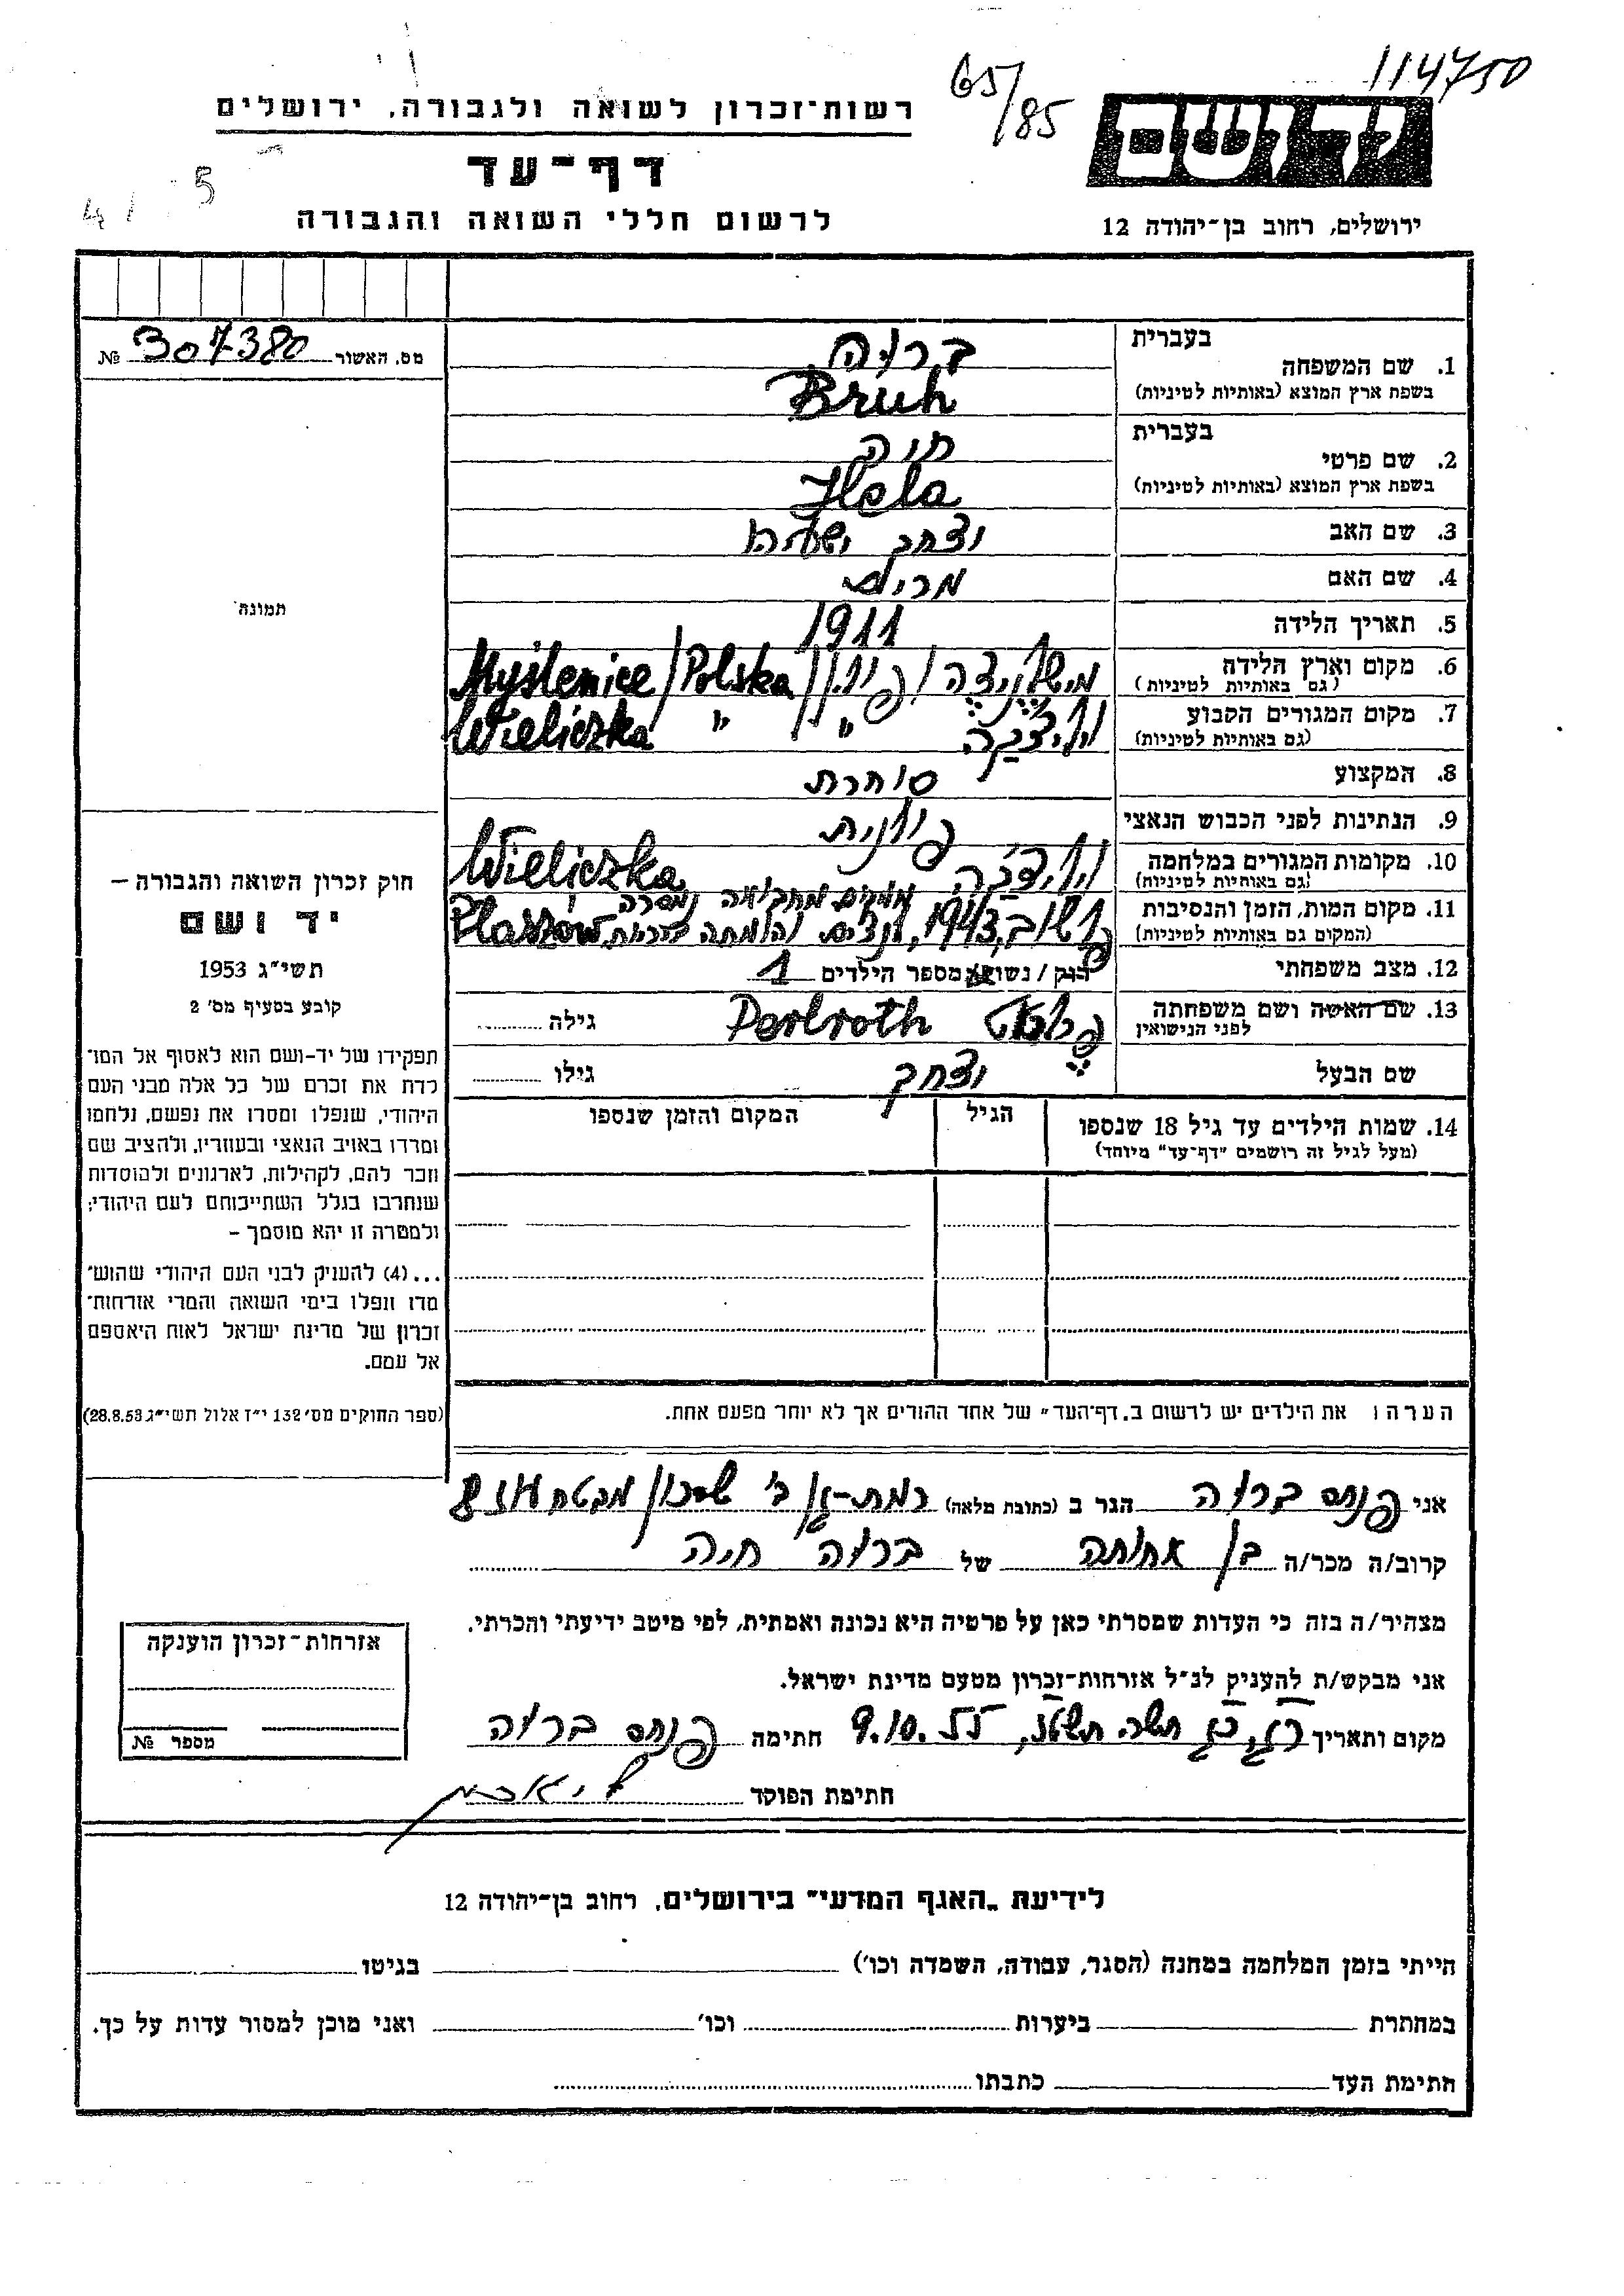 114750
65/85
יד ושם
ירושלים, רחוב בן-יהודה 12
רשות-זכרון לשואה ולגבורה, ירושלים
דף-עד
לרשום חללי השואה והגבורה
5
4
מס. האשור 307380 №
בעברית ברוה
1. שם המשפחה
בשפת ארץ המוצא (באותיות לטיניות) Bruh
בעברית חיה
2. שם פרטי
בשפת ארץ המוצא (באותיות לטיניות) Hela
3. שם האב יצחק ישעיהו
4. שם האם מרים
5. תאריך הלידה 1911
6. מקום וארץ הלידה מישלניצה / פולין / Myślenice / Polska
(גם באותיות לטיניות)
7. מקום המגורים הקבוע ויליצ'קה " " Wieliczka
(גם באותיות לטיניות)
8. המקצוע סוחרת
9. הנתינות לפני הכבוש הנאצי פולנית
10. מקומות המגורים במלחמה ויליצ'קה Wieliczka
(גם באותיות לטיניות)
11. מקום המות, הזמן והנסיבות 1943 Płaszów
(המקום גם באותיות לטיניות)
12. מצב משפחתי רווק / נשוי מספר הילדים 1
13. שם האשה ושם משפחתה Perlroth גילה
לפני הנישואין
שם הבעל יצחק גילו
14. שמות הילדים עד גיל 18 שנספו הגיל המקום והזמן שנספו
(מעל לגיל זה רושמים "דף-עד" מיוחד)
הערה: את הילדים יש לרשום ב"דף-העד" של אחד ההורים אך לא יותר מפעם אחת.
תמונה
חוק זכרון השואה והגבורה –
יד ושם
תשי"ג 1953
קובע בסעיף מס' 2
תפקידו של יד-ושם הוא לאסוף אל המו־
לדת את זכרם של כל אלה מבני העם
היהודי, שנפלו ומסרו את נפשם, נלחמו
ומרדו באויב הנאצי ובעוזריו, ולהציב שם
וזכר להם, לקהילות, לארגונים ולמוסדות
שנחרבו בגלל השתייכותם לעם היהודי;
ולמטרה זו יהא מוסמך –
...(4) להעניק לבני העם היהודי שהוש־
מדו ונפלו בימי השואה והמרי אזרחות־
זכרון של מדינת ישראל לאות היאספם
אל עמם.
(ספר החוקים מס' 132 י"ז אלול תשי"ג 28.8.53)
אני פנחס ברוה הגר ב (כתובת מלאה) רמת-גן
קרוב/ה מכר/ה בן אחותה של ברוה חיה
מצהיר/ה בזה כי העדות שמסרתי כאן על פרטיה היא נכונה ואמתית, לפי מיטב ידיעתי והכרתי.
אני מבקש/ת להעניק לנ"ל אזרחות-זכרון מטעם מדינת ישראל.
מקום ותאריך 9.10.55 חתימה פנחס ברוה
חתימת הפוקד
אזרחות-זכרון הוענקה
מספר №
לידיעת "האגף המדעי" בירושלים, רחוב בן-יהודה 12
הייתי בזמן המלחמה במחנה (הסגר, עבודה, השמדה וכו') בגיטו
במחתרת ביערות וכו' ואני מוכן למסור עדות על כך.
חתימת העד כתבתו